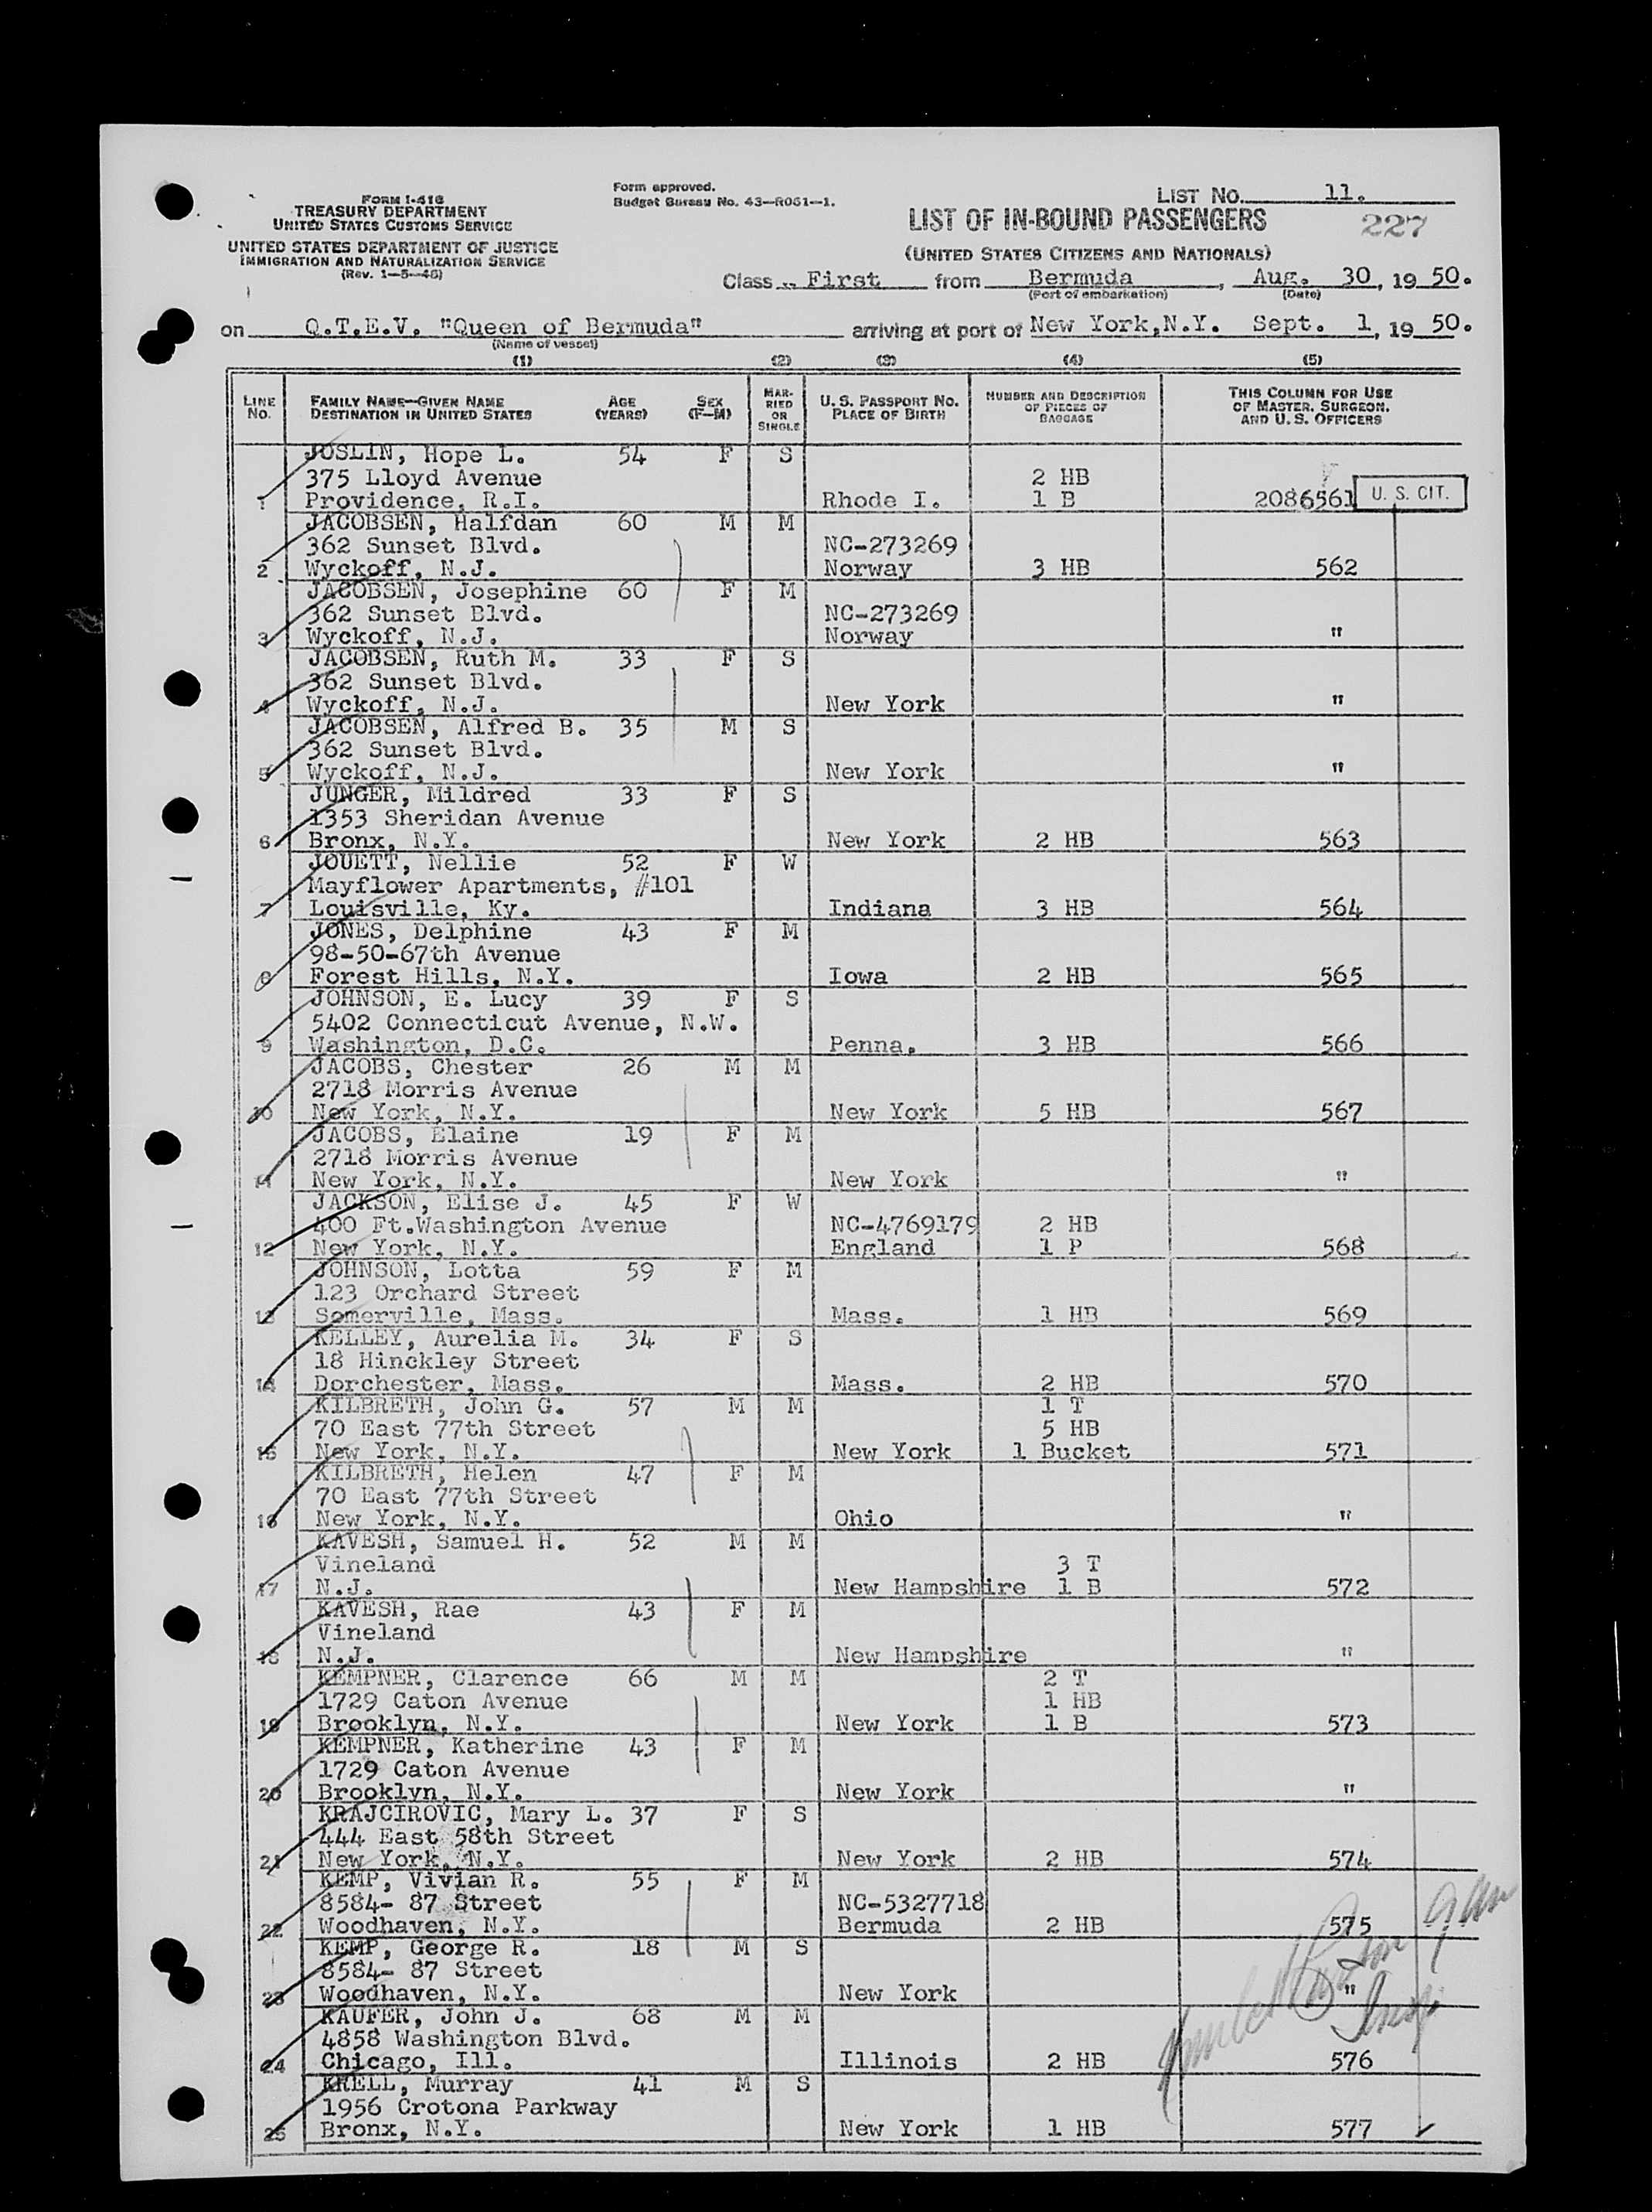 FORM I-416
TREASURY DEPARTMENT
UNITED STATES CUSTOMS SERVICE
UNITED STATES DEPARTMENT OF JUSTICE
IMMIGRATION AND NATURALIZATION SERVICE
(Rev. 1-5-48)
Form approved.
Budget Bureau No. 43-R061-1.
LIST NO. 11.
LIST OF IN-BOUND PASSENGERS 227
(UNITED STATES CITIZENS AND NATIONALS)
Class First from Bermuda, Aug. 30, 19 50.
(Port of embarkation) (Date)
on Q.T.E.V. "Queen of Bermuda" arriving at port of New York, N.Y. Sept. 1, 19 50.
(Name of vessel)
(1) (2) (3) (4) (5)
LINE NO. FAMILY NAME—GIVEN NAME DESTINATION IN UNITED STATES AGE (YEARS) SEX (F—M) MARRIED OR SINGLE U. S. PASSPORT NO. PLACE OF BIRTH NUMBER AND DESCRIPTION OF PIECES OF BAGGAGE THIS COLUMN FOR USE OF MASTER, SURGEON, AND U. S. OFFICERS
JOSLIN, Hope L. 54 F S
375 Lloyd Avenue 2 HB
1 Providence, R.I. Rhode I. 1 B 2086561 U. S. CIT.
JACOBSEN, Halfdan 60 M M
362 Sunset Blvd. NC-273269
2 Wyckoff, N.J. Norway 3 HB 562
JACOBSEN, Josephine 60 F M
362 Sunset Blvd. NC-273269
3 Wyckoff, N.J. Norway "
JACOBSEN, Ruth M. 33 F S
362 Sunset Blvd.
4 Wyckoff, N.J. New York "
JACOBSEN, Alfred B. 35 M S
362 Sunset Blvd.
5 Wyckoff, N.J. New York "
JUNGER, Mildred 33 F S
1353 Sheridan Avenue
6 Bronx, N.Y. New York 2 HB 563
JOUETT, Nellie 52 F W
Mayflower Apartments, #101
7 Louisville, Ky. Indiana 3 HB 564
JONES, Delphine 43 F M
98-50-67th Avenue
8 Forest Hills, N.Y. Iowa 2 HB 565
JOHNSON, E. Lucy 39 F S
5402 Connecticut Avenue, N.W.
9 Washington, D.C. Penna. 3 HB 566
JACOBS, Chester 26 M M
2718 Morris Avenue
10 New York, N.Y. New York 5 HB 567
JACOBS, Elaine 19 F M
2718 Morris Avenue
11 New York, N.Y. New York "
JACKSON, Elise J. 45 F W
400 Ft.Washington Avenue NC-4769179 2 HB
12 New York, N.Y. England 1 P 568
JOHNSON, Lotta 59 F M
123 Orchard Street
13 Somerville, Mass. Mass. 1 HB 569
KELLEY, Aurelia M. 34 F S
18 Hinckley Street
14 Dorchester, Mass. Mass. 2 HB 570
KILBRETH, John G. 57 M M 1 T
70 East 77th Street 5 HB
15 New York, N.Y. New York 1 Bucket 571
KILBRETH, Helen 47 F M
70 East 77th Street
16 New York, N.Y. Ohio "
KAVESH, Samuel H. 52 M M
Vineland 3 T
17 N.J. New Hampshire 1 B 572
KAVESH, Rae 43 F M
Vineland
18 N.J. New Hampshire "
KEMPNER, Clarence 66 M M 2 T
1729 Caton Avenue 1 HB
19 Brooklyn, N.Y. New York 1 B 573
KEMPNER, Katherine 43 F M
1729 Caton Avenue
20 Brooklyn, N.Y. New York "
KRAJCIROVIC, Mary L. 37 F S
444 East 58th Street
21 New York, N.Y. New York 2 HB 574
KEMP, Vivian R. 55 F M
8584- 87 Street NC-5327718
22 Woodhaven, N.Y. Bermuda 2 HB 575
KEMP, George R. 18 M S
8584- 87 Street
23 Woodhaven, N.Y. New York "
KAUFER, John J. 68 M M
4858 Washington Blvd.
24 Chicago, Ill. Illinois 2 HB 576
KRELL, Murray 41 M S
1956 Crotona Parkway
25 Bronx, N.Y. New York 1 HB 577